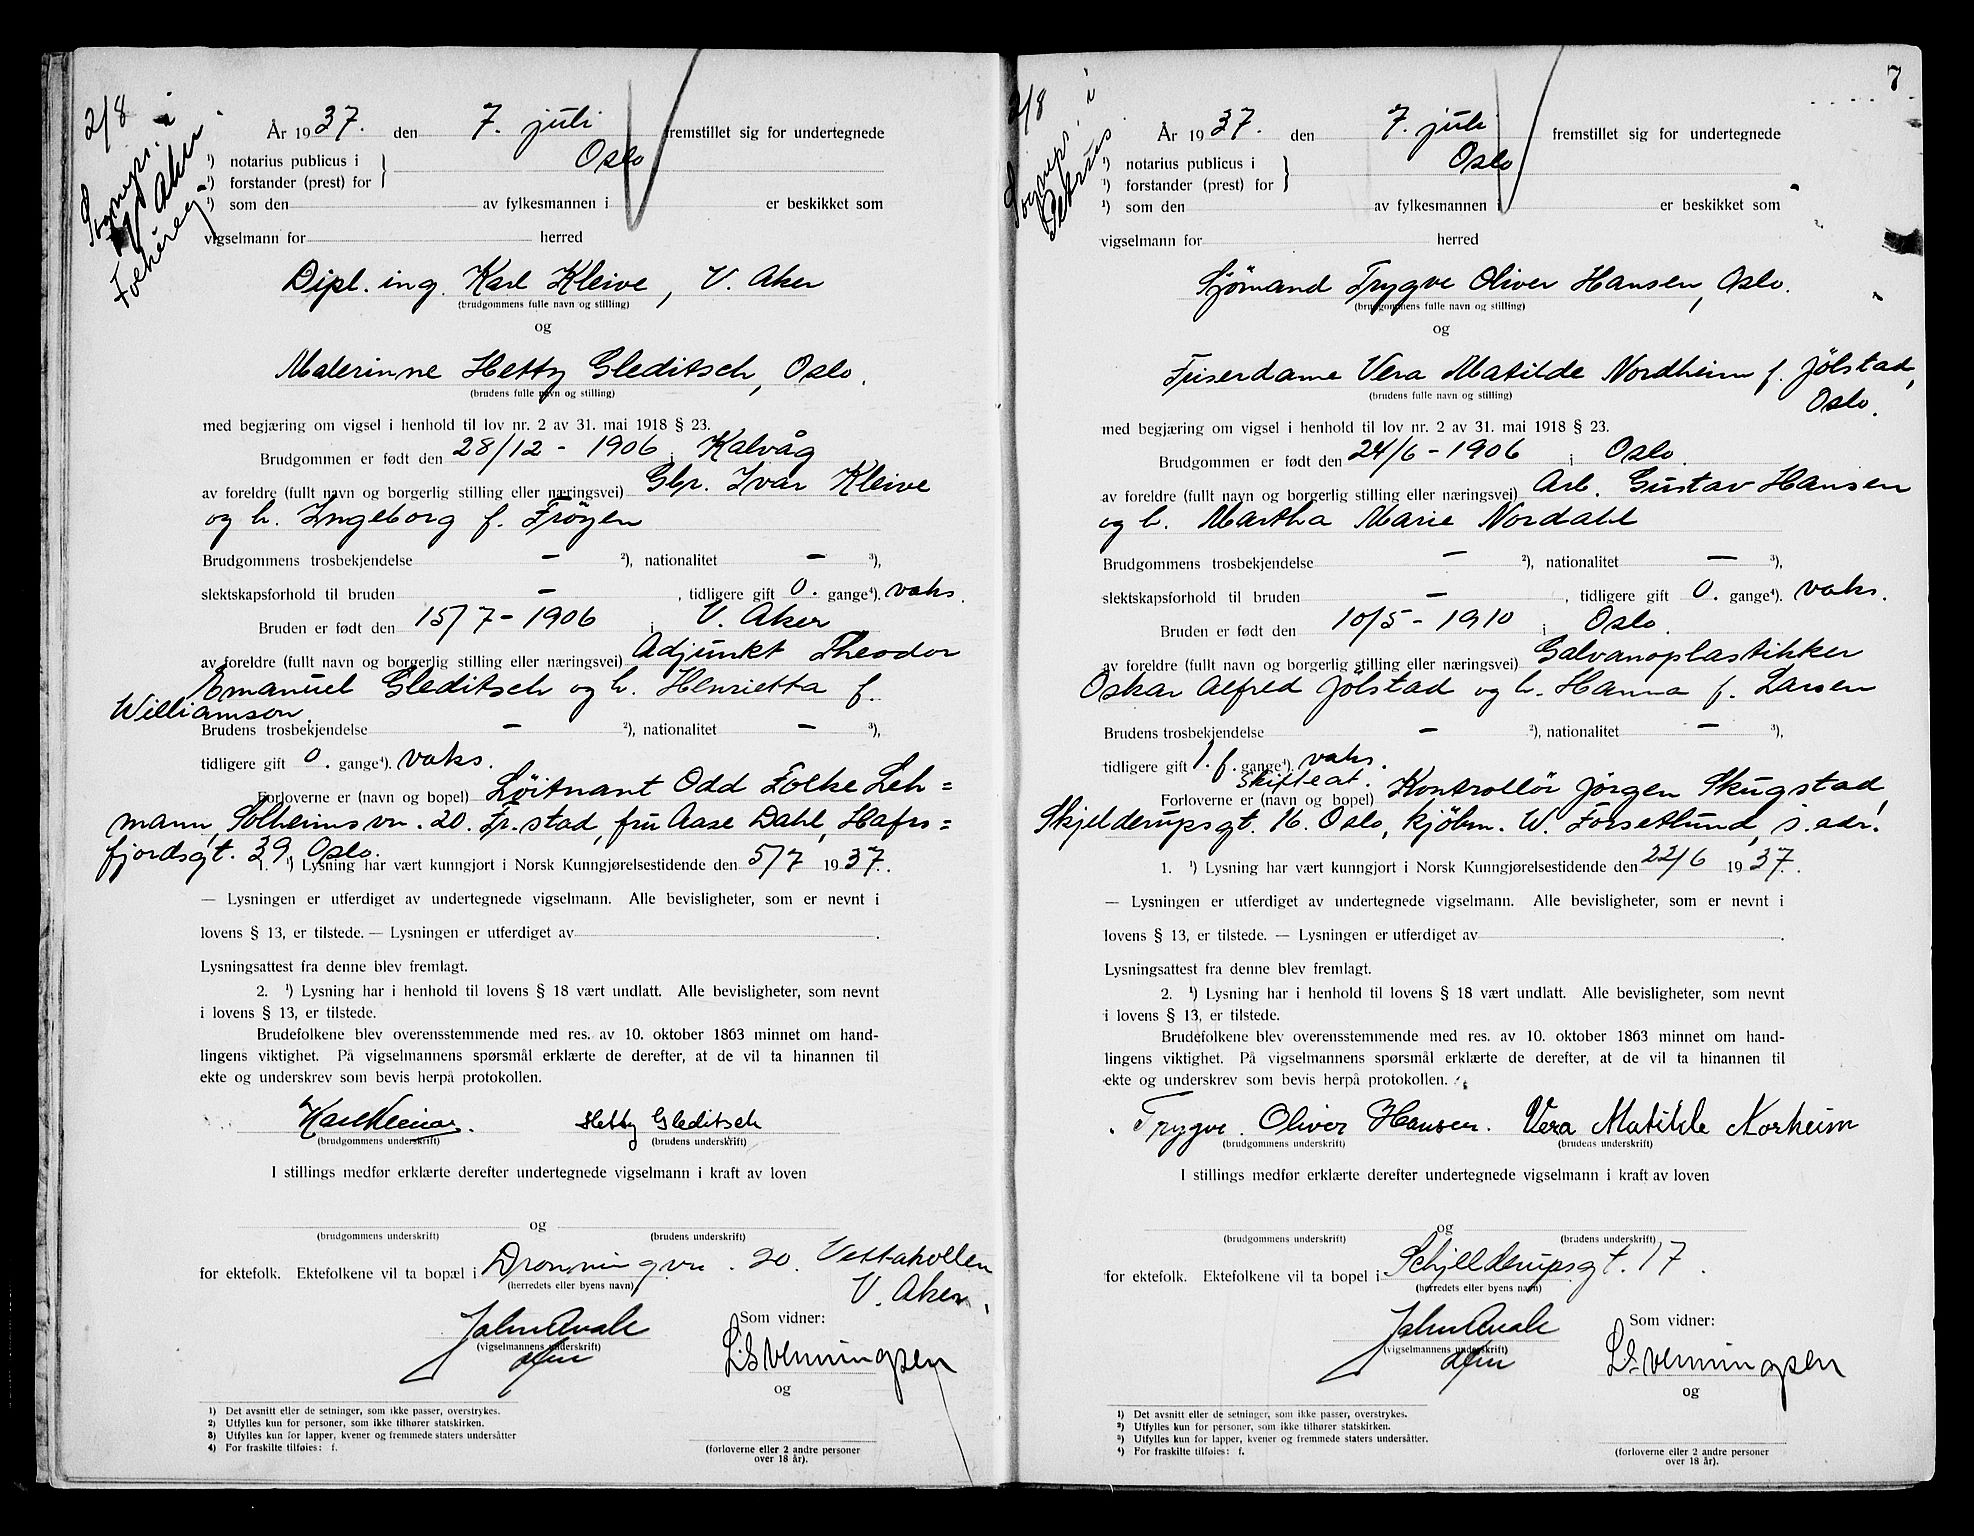 2/8
Sognepr. i
V. Aker
Folkereg.
År 1937. den 7. juli fremstillet sig for undertegnede
¹) notarius publicus i
Oslo
¹) forstander (prest) for
¹) som den av fylkesmannen i er beskikket som
vigselmann for herred
Dipl. ing. Karl Kleive, V. Aker
(brudgommens fulle navn og stilling)
og
Malerinne Hetty Gleditsch, Oslo.
(brudens fulle navn og stilling)
med begjæring om vigsel i henhold til lov nr. 2 av 31. mai 1918 § 23.
Brudgommen er født den 28/12 - 1906 i Kalvåg
av foreldre (fullt navn og borgerlig stilling eller næringsvei) Gbr. Ivar Kleive
og h. Ingeborg f. Frøyen
Brudgommens trosbekjendelse — ²), nationalitet — ³),
slektskapsforhold til bruden — , tidligere gift 0. gange⁴). vaks.
Bruden er født den 15/7 - 1906 i V. Aker
av foreldre (fullt navn og borgerlig stilling eller næringsvei) Adjunkt Theodor
Emanuel Gleditsch og h. Henrietta f.
Williamson.
Brudens trosbekjendelse — ²), nationalitet — ³),
tidligere gift 0. gange⁴). vaks.
Forloverne er (navn og bopel) Løitnant Odd Folke Leh=
mann, Solheimsvn. 20. Fr.stad, fru Aase Dahl, Hafrs=
fjordsgt. 39. Oslo.
1. ¹) Lysning har vært kunngjort i Norsk Kunngjørelsestidende den 5/7 1937.
— Lysningen er utferdiget av undertegnede vigselmann. Alle bevisligheter, som er nevnt i
lovens § 13, er tilstede. — Lysningen er utferdiget av .
Lysningsattest fra denne blev fremlagt.
2. ¹) Lysning har i henhold til lovens § 18 vært undlatt. Alle bevisligheter, som nevnt
i lovens § 13, er tilstede.
Brudefolkene blev overensstemmende med res. av 10. oktober 1863 minnet om hand-
lingens viktighet. På vigselmannens spørsmål erklærte de derefter, at de vil ta hinannen til
ekte og underskrev som bevis herpå protokollen.
Karl Kleive. Hetty Gleditsch
(brudgommens underskrift) (brudens underskrift)
I stillings medfør erklærte derefter undertegnede vigselmann i kraft av loven
og
(brudgommens underskrift) (brudens underskrift)
for ektefolk. Ektefolkene vil ta bopæl i Dronningvn. 20. Vettakollen
(herredets eller byens navn)
V. Aker.
Som vidner:
(vigselmannens underskrift)
L. Svenningsen
og
1) Det avsnitt eller de setninger, som ikke passer, overstrykes.
2) Utfylles kun for personer, som ikke tilhører statskirken.
3) Utfylles kun for lapper, kvener og fremmede staters undersåtter
4) For fraskilte tilføies: f.
(forloverne eller 2 andre personer
over 18 år).
7
2/8
Sognepr. i
Petrus
År 1937. den 7. juli fremstillet sig for undertegnede
¹) notarius publicus i
Oslo
¹) forstander (prest) for
¹) som den av fylkesmannen i er beskikket som
vigselmann for herred
Sjømand Trygve Oliver Hansen, Oslo.
(brudgommens fulle navn og stilling)
og
Friserdame Vera Matilde Nordheim f. Jølstad,
(brudens fulle navn og stilling)
Oslo.
med begjæring om vigsel i henhold til lov nr. 2 av 31. mai 1918 § 23.
Brudgommen er født den 24/6 - 1906 i Oslo.
av foreldre (fullt navn og borgerlig stilling eller næringsvei) Arb. Gustav Hansen
og h. Martha Marie Nordahl
Brudgommens trosbekjendelse — ²), nationalitet — ³),
slektskapsforhold til bruden — , tidligere gift 0. gange⁴). vaks.
Bruden er født den 10/5 - 1910 i Oslo.
av foreldre (fullt navn og borgerlig stilling eller næringsvei) Galvanoplastikker
Oskar Alfred Jølstad og h. Hanna f. Larsen
Brudens trosbekjendelse — ²), nationalitet — ³),
tidligere gift 1. f. gange⁴). vaks.
Skifteat.
Forloverne er (navn og bopel) Kontrollør Jørgen Skugstad,
Skjelderupsgt. 16. Oslo, kjøbm. W. Forsetlund, s. adr.
1. ¹) Lysning har vært kunngjort i Norsk Kunngjørelsestidende den 22/6 1937.
— Lysningen er utferdiget av undertegnede vigselmann. Alle bevisligheter, som er nevnt i
lovens § 13, er tilstede. — Lysningen er utferdiget av .
Lysningsattest fra denne blev fremlagt.
2. ¹) Lysning har i henhold til lovens § 18 vært undlatt. Alle bevisligheter, som nevnt
i lovens § 13, er tilstede.
Brudefolkene blev overensstemmende med res. av 10. oktober 1863 minnet om hand-
lingens viktighet. På vigselmannens spørsmål erklærte de derefter, at de vil ta hinannen til
ekte og underskrev som bevis herpå protokollen.
Trygve Oliver Hansen. Vera Matilde Norheim
(brudgommens underskrift) (brudens underskrift)
I stillings medfør erklærte derefter undertegnede vigselmann i kraft av loven
og
(brudgommens underskrift) (brudens underskrift)
for ektefolk. Ektefolkene vil ta bopel i Schjelderupsgt. 17.
(herredets eller byens navn)
Som vidner:
(vigselmannens underskrift)
L. Svenningsen
og
1) Det avsnitt eller de setninger, som ikke passer, overstrykes.
2) Utfylles kun for personer, som ikke tilhører statskirken.
3) Utfylles kun for lapper, kvener og fremmede staters undersåtter.
4) For fraskilte tilføies: f.
(forloverne eller 2 andre personer
over 18 år).